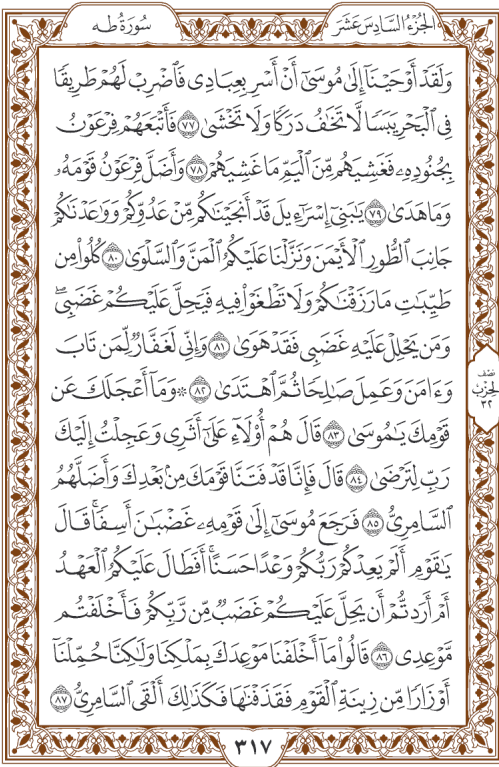 الجُزْءُ السَّادِسَ عَشَرَ
سُورَةُ طه
وَلَقَدْ أَوْحَيْنَآ إِلَىٰ مُوسَىٰٓ أَنْ أَسْرِ بِعِبَادِى فَٱضْرِبْ لَهُمْ طَرِيقًا
فِى ٱلْبَحْرِ يَبَسًا لَّا تَخَٰفُ دَرَكًا وَلَا تَخْشَىٰ ٧٧ فَأَتْبَعَهُمْ فِرْعَوْنُ
بِجُنُودِهِۦ فَغَشِيَهُم مِّنَ ٱلْيَمِّ مَا غَشِيَهُمْ ٧٨ وَأَضَلَّ فِرْعَوْنُ قَوْمَهُۥ
وَمَا هَدَىٰ ٧٩ يَٰبَنِىٓ إِسْرَٰٓءِيلَ قَدْ أَنجَيْنَٰكُم مِّنْ عَدُوِّكُمْ وَوَٰعَدْنَٰكُمْ
جَانِبَ ٱلطُّورِ ٱلْأَيْمَنَ وَنَزَّلْنَا عَلَيْكُمُ ٱلْمَنَّ وَٱلسَّلْوَىٰ ٨٠ كُلُوا۟ مِن
طَيِّبَٰتِ مَا رَزَقْنَٰكُمْ وَلَا تَطْغَوْا۟ فِيهِ فَيَحِلَّ عَلَيْكُمْ غَضَبِى ۖ
وَمَن يَحْلِلْ عَلَيْهِ غَضَبِى فَقَدْ هَوَىٰ ٨١ وَإِنِّى لَغَفَّارٌ لِّمَن تَابَ
وَءَامَنَ وَعَمِلَ صَٰلِحًا ثُمَّ ٱهْتَدَىٰ ٨٢ ۞ وَمَآ أَعْجَلَكَ عَن
قَوْمِكَ يَٰمُوسَىٰ ٨٣ قَالَ هُمْ أُو۟لَآءِ عَلَىٰٓ أَثَرِى وَعَجِلْتُ إِلَيْكَ
رَبِّ لِتَرْضَىٰ ٨٤ قَالَ فَإِنَّا قَدْ فَتَنَّا قَوْمَكَ مِنۢ بَعْدِكَ وَأَضَلَّهُمُ
ٱلسَّامِرِىُّ ٨٥ فَرَجَعَ مُوسَىٰٓ إِلَىٰ قَوْمِهِۦ غَضْبَٰنَ أَسِفًا ۚ قَالَ
يَٰقَوْمِ أَلَمْ يَعِدْكُمْ رَبُّكُمْ وَعْدًا حَسَنًا ۚ أَفَطَالَ عَلَيْكُمُ ٱلْعَهْدُ
أَمْ أَرَدتُّمْ أَن يَحِلَّ عَلَيْكُمْ غَضَبٌ مِّن رَّبِّكُمْ فَأَخْلَفْتُم
مَّوْعِدِى ٨٦ قَالُوا۟ مَآ أَخْلَفْنَا مَوْعِدَكَ بِمَلْكِنَا وَلَٰكِنَّا حُمِّلْنَآ
أَوْزَارًا مِّن زِينَةِ ٱلْقَوْمِ فَقَذَفْنَٰهَا فَكَذَٰلِكَ أَلْقَى ٱلسَّامِرِىُّ ٨٧
نصف
الحزب
٣٢
٣١٧